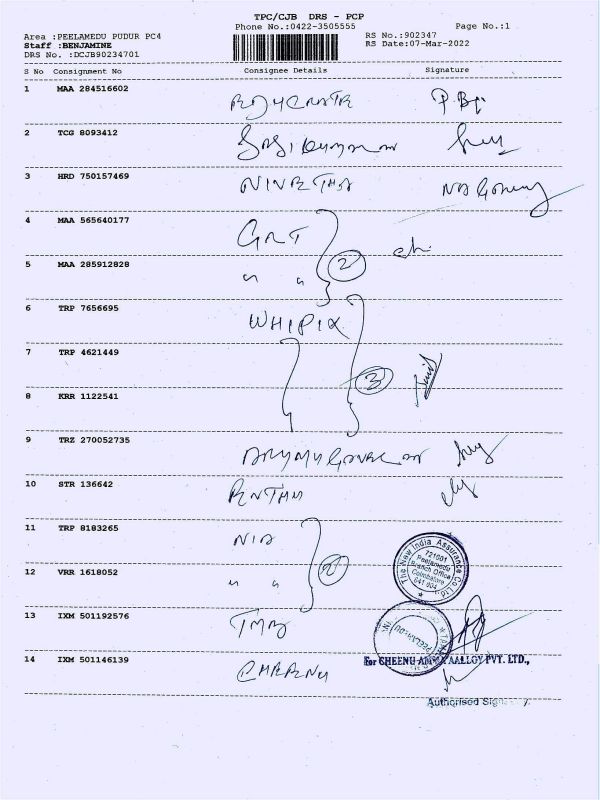 TPC/CJB DRS - PCP
Phone No.:0422-3505555 Page No.:1
Area :PEELAMEDU PUDUR PC4 RS No.:902347
Staff :BENJAMINE RS Date:07-Mar-2022
DRS No. :DCJB90234701
S No Consignment No Consignee Details Signature
1 MAA 284516602
2 TCG 8093412
3 HRD 750157469 NIVETHA
4 MAA 565640177 GRT 2
5 MAA 285912828 " "
6 TRP 7656695 WHIPIX
7 TRP 4621449 3
8 KRR 1122541
9 TRZ 270052735
10 STR 136642
11 TRP 8183265 NIA 2
12 VRR 1618052 " "
13 IXM 501192576 TMB
14 IXM 501146139 CHEENU
The New India Assurance Co. Ltd.
721001
Peelamedu
Branch Office
Coimbatore
641 004
For CHEENU PVT. LTD.,
Authorised